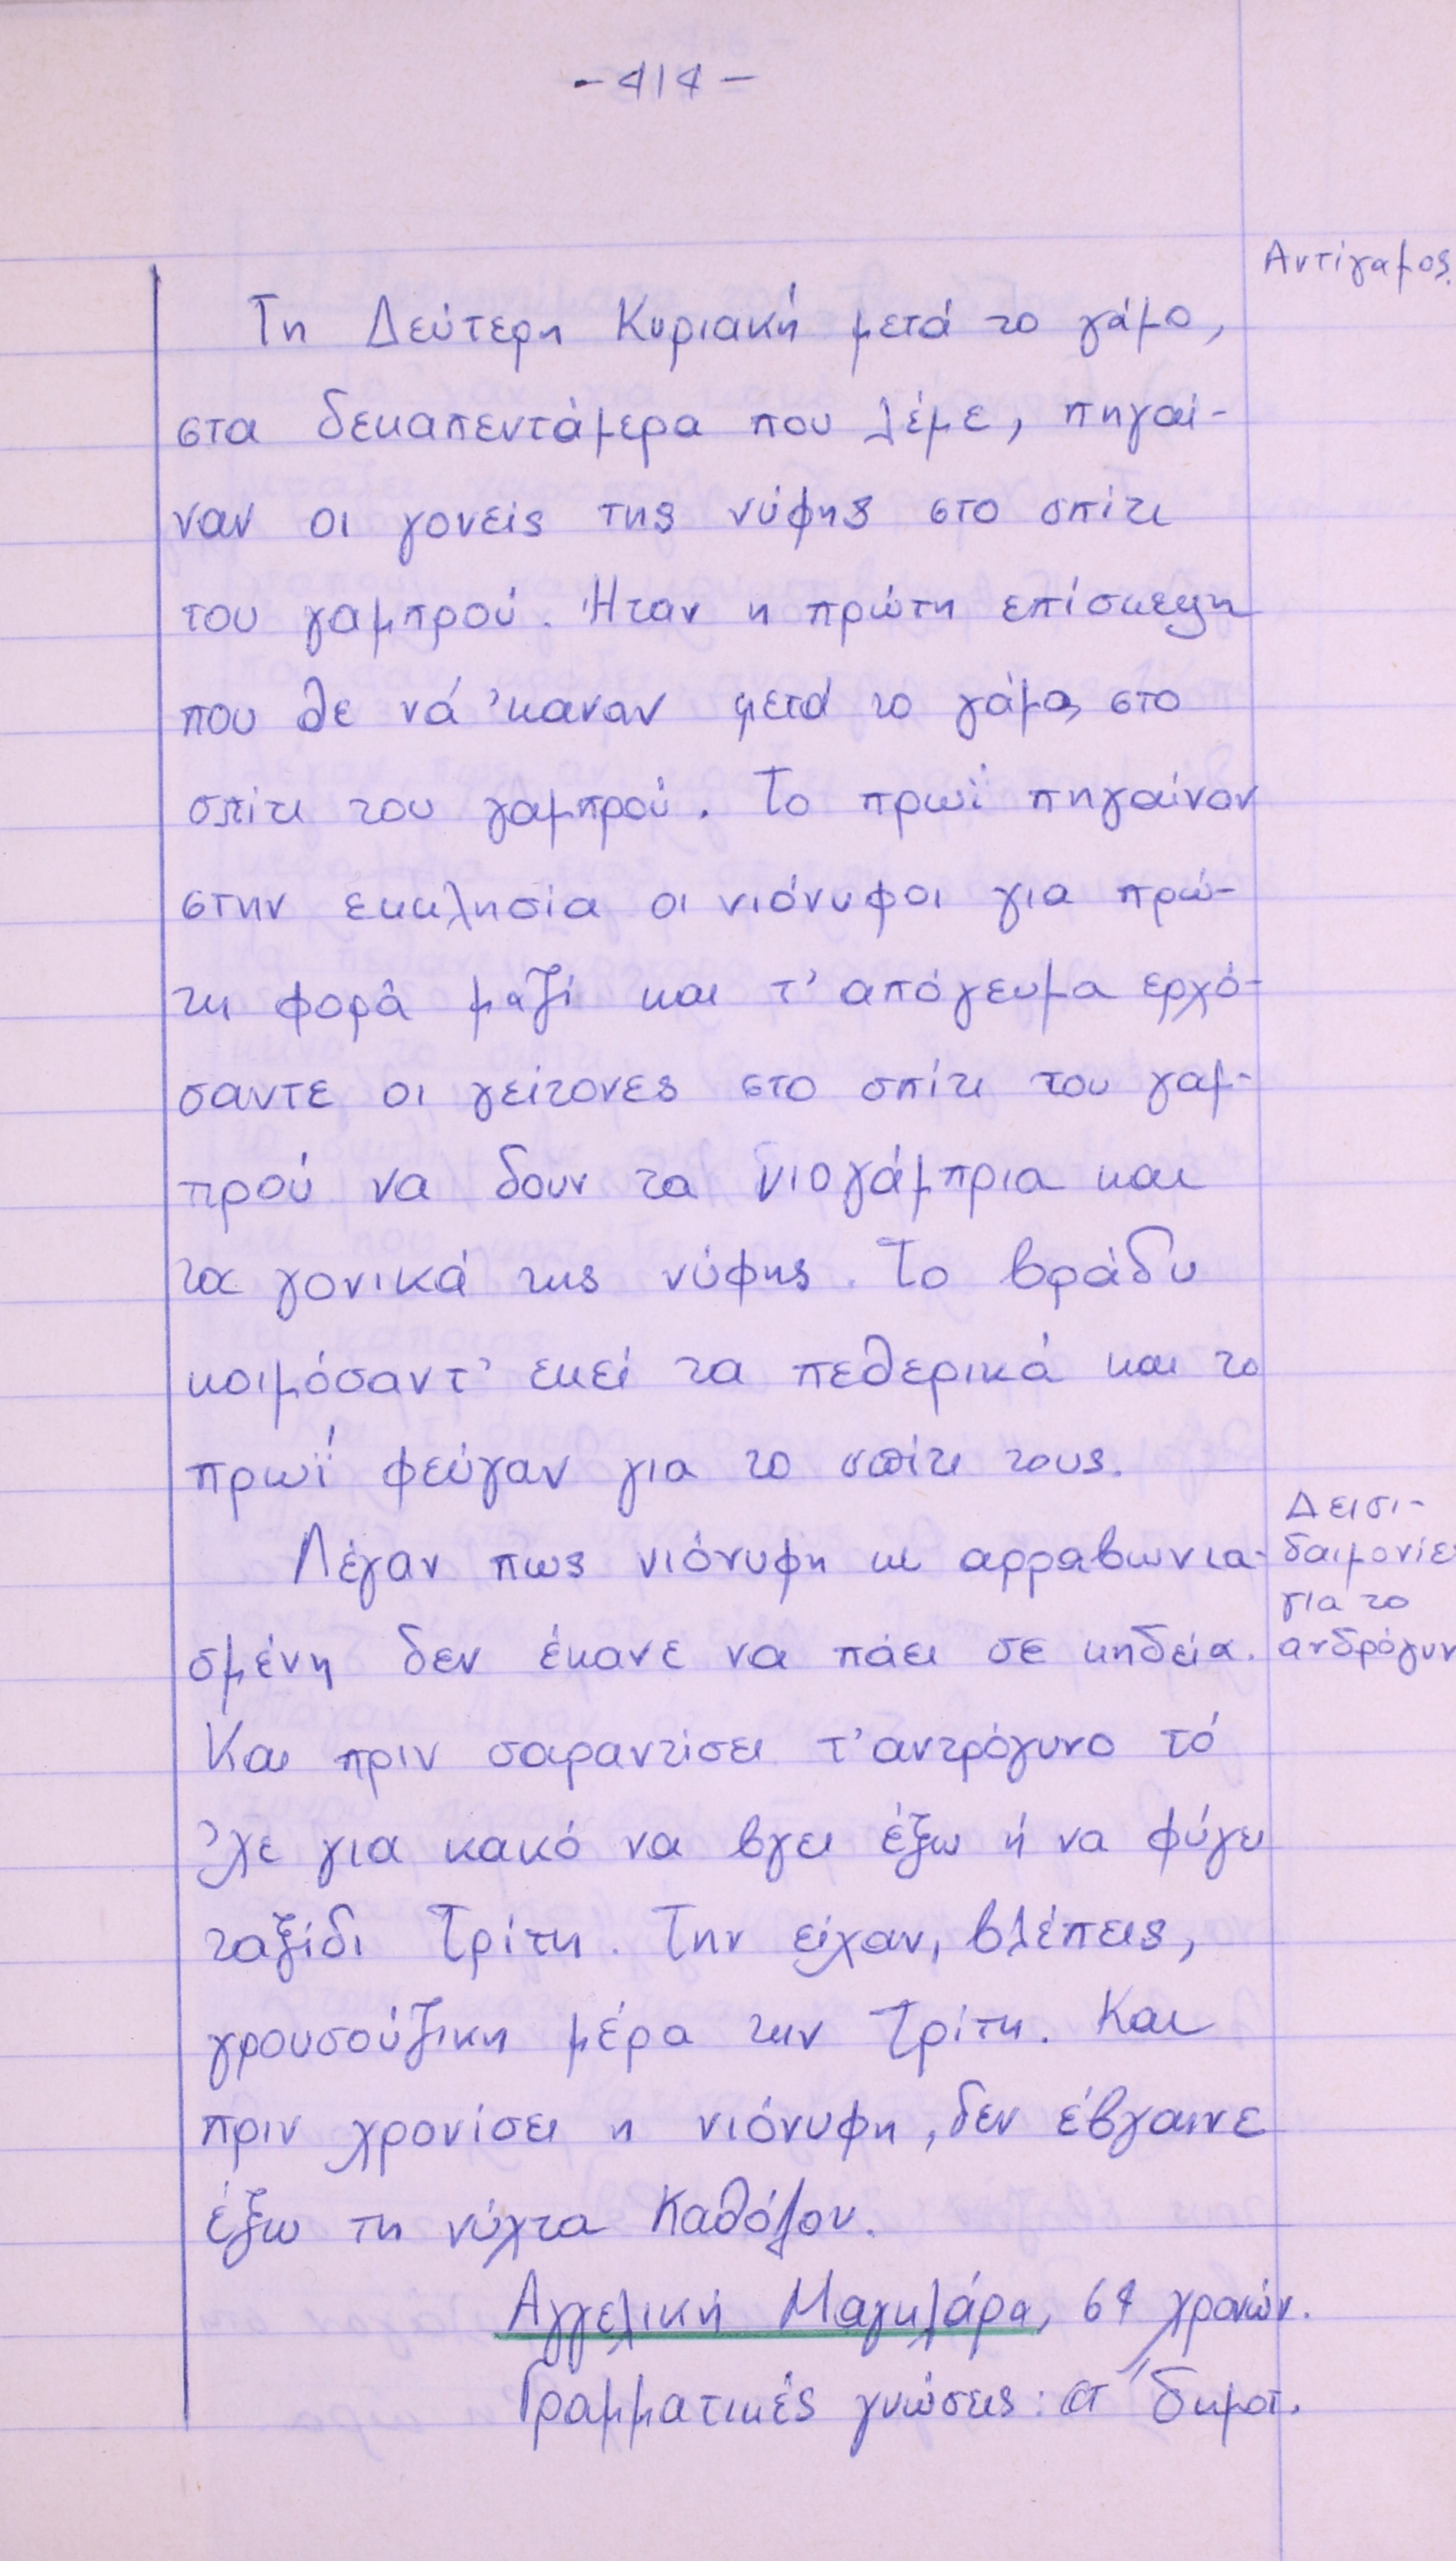 -414-
Αντίγαμος.
Τη Δεύτερη Κυριακή μετά το γάμο,
στα δεκαπεντάμερα που λέμε, πηγαί-
ναν οι γονείς της νύφης στο σπίτι
του γαμπρού. Ήταν η πρώτη επίσκεψη
που θε νά 'καναν μετά το γάμο, στο
σπίτι του γαμπρού. Το πρωΐ πηγαίναν
στην εκκλησία οι νιόνυφοι για πρώ-
τη φορά μαζί και τ' απόγευμα ερχό-
σαντε οι γείτονες στο σπίτι του γαμ-
πρού να δουν τα νιογάμπρια και
τα γονικά της νύφης. Το βράδυ
κοιμόσαντ' εκεί τα πεθερικά και το
πρωΐ φεύγαν για το σπίτι τους.
Λέγαν πως νιόνυφη κι αρραβωνια-
σμένη δεν έκανε να πάει σε κηδεία.
Δεισι-
δαιμονίες
για το
ανδρόγυν
Και πριν σαραντίσει τ' αντρόγυνο τό
'χε για κακό να βγει έξω ή να φύγει
ταξίδι Τρίτη. Την είχαν, βλέπεις,
γρουσούζικη μέρα την Τρίτη. Και
πριν χρονίσει η νιόνυφη, δεν έβγαινε
έξω τη νύχτα καθόλου.
Αγγελική Μαγκλάρα, 64 χρονών.
Γραμματικές γνώσεις: ΣΤ' δημοτ.